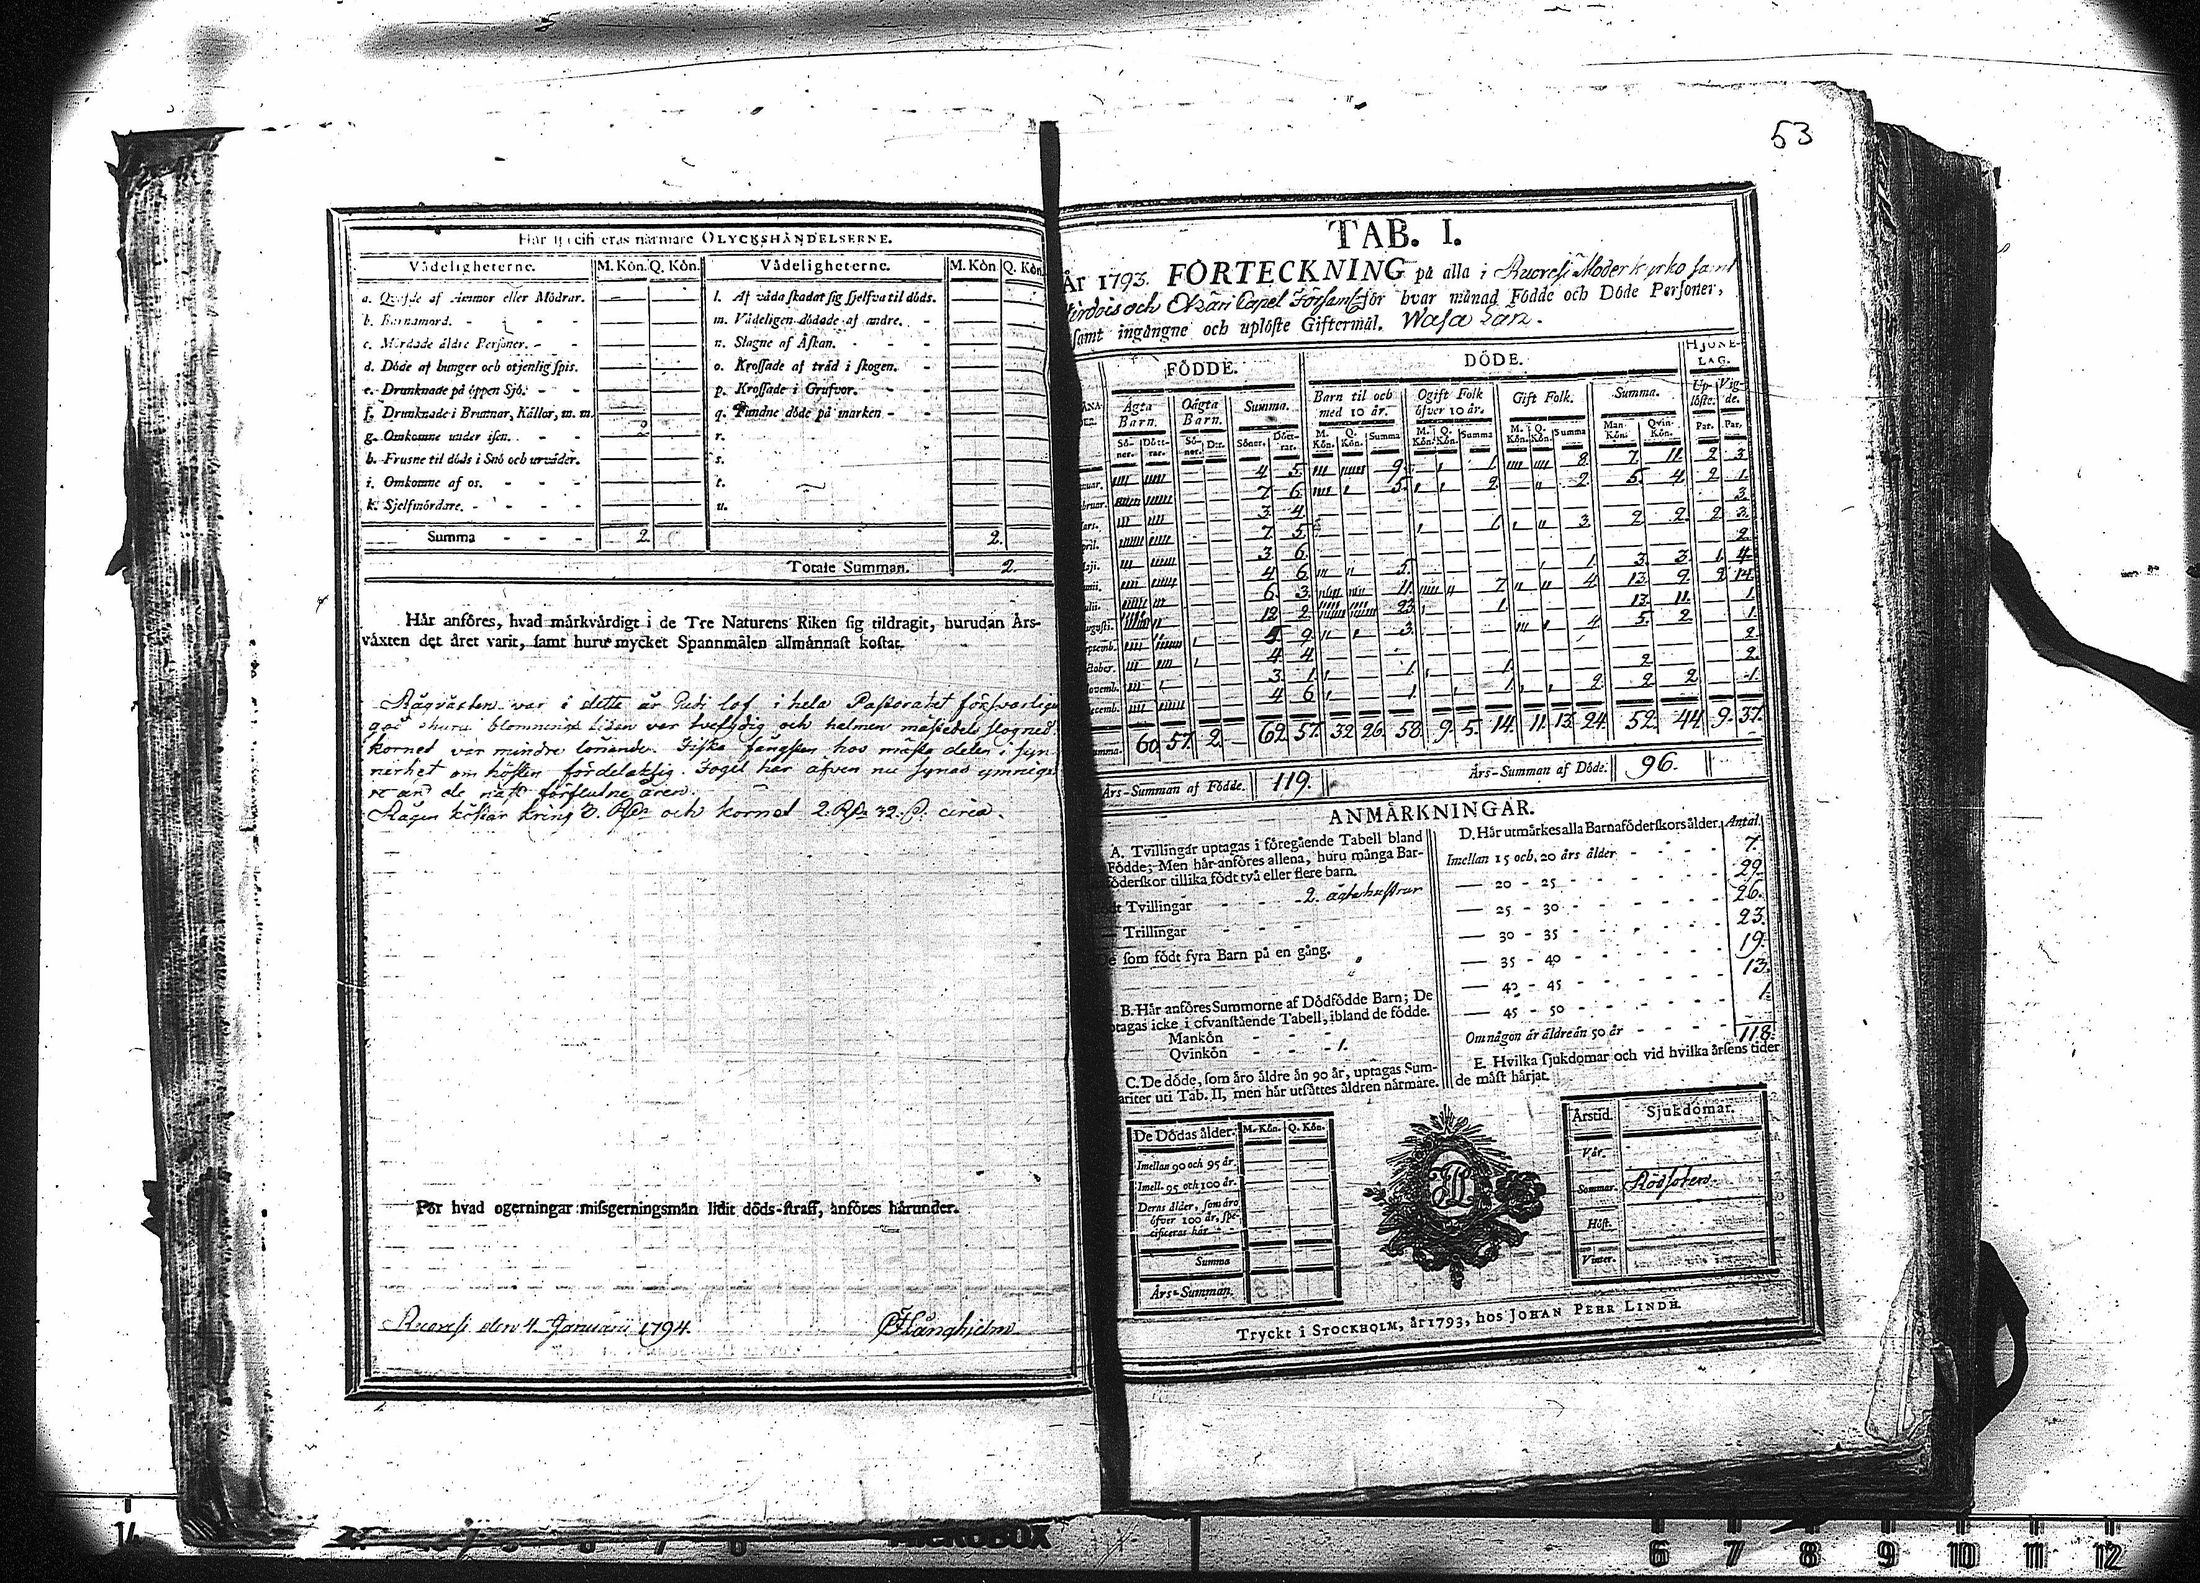 53
Vådeligheterne. M. Kön. Q. Kön. Vådeligheterne. M. Kön. Q. Kön.
a. af Ammor eller Mödrar. l. Af våda skadat sig sjelfva til döds.
b. Barnamord. m. Vådeligen dödade af andre.
c. Mördade äldre Personer. n. Slagne af Åskan.
d. Döde af hunger och otjenlig spis. o. Krossade af träd i skogen.
e. Drunknade på öppen Sjö. p. Krossade i Grufvor.
f. Drunknade i Brunnar, Källor, m. m. q. Fundne döde på marken
g. Omkomne under isen. 2 r.
h. Frusne til döds i Snö och urväder. s.
i. Omkomne af os. t.
k. Sjelfmördare. u.
Summa 2. 2.
Totale Summan. 2.
Här anföres, hvad märkvärdigt i de Tre Naturens Riken sig tildragit, hurudan Års-
växten det året varit, samt huru mycket Spannmålen allmännast kostat.
Rågväxten var i detta år Gudi lof i hela Pastoratet
blomnings tiden var och
kornet var mindre lönande. Fiske fångsten hos mästa delen i syn-
nerhet om hösten fördelaktig. Fogel har äfven nu synas ymniga
re än de näst förflutne åren.
Rågen kostar kring 3. Rd. och kornet 2. Rd. 32. circa.
För hvad ogerningar missgerningsmän lidit döds-straff, anföres härunder.
Ruovesi den 4 Januarii 1794.
TAB. I.
År 1793. FÖRTECKNING på alla i Ruovesi Moderkyrko samt
och Capel för hvar månad Födde och Döde Personer,
samt ingångne och uplöste Giftermål. Wasa Län.
FÖDDE. DÖDE. HJONE-
LAG.
Ägta Barn. Oägta Barn. Summa. Barn til och med 10 år. Ogift Folk öfver 10 år. Gift Folk. Summa. Up-löste. Vig-de.
Sö-ner. Dött-rar. Sö-ner. Dtr. Söner. Dött-rar. M. Kön. Q. Kön. Summa M. Kön. Q. Kön. Summa M. Kön. Q. Kön. Summa Man-Kön. Qvin-Kön. Par. Par.
4 5 9 1 8 7 11 2 3
7 6 5 2 2 5 4 2 1
3 4 3
7 5 3 2 2 2 3
3 6 2
4 6 5 1 3 3 1 4
6 3 11 7 4 13 9 2 14
12 2 23 1 13 11 1
5 9 3 4 5 2 1
4 4 2
3 1 1 1 2 2
4 6 1 1 2 2 2 1
60. 57. 2. 62. 57. 32. 26. 58. 9. 5. 14. 11. 13. 24. 52. 44. 9. 37.
Års-Summan af Födde. 119. Års-Summan af Döde. 96.
ANMÄRKNINGAR.
A. Tvillingar uptagas i föregående Tabell bland
Födde; Men här anföres allena, huru många Bar-
föderskor tillika födt två eller flere barn.
Tvillingar 2. ägta hustrur
Trillingar
som födt fyra Barn på en gång.
B. Här anföres Summorne af Dödfödde Barn; De
uptagas icke i ofvanstående Tabell, ibland de födde.
Mankön
Qvinkön 1.
C. De döde, som äro äldre än 90 år, uptagas Sum-
mariter uti Tab. II, men här utsättes åldren närmare.
De Dödas ålder. M. Kön. Q. Kön.
Imellan 90 och 95 år.
Imell. 95 och 100 år.
Deras ålder, som äro
öfver 100 år, spe-
cificeras här
Summa
Års-Summan.
D. Här utmärkes alla Barnaföderskors ålder. Antal.
Imellan 15 och 20 års ålder 7.
20 - 25 29.
25 - 30 26.
30 - 35 23.
35 - 40 19.
40 - 45 13.
45 - 50 1.
Om någon är äldre än 50 år
118.
E. Hvilka sjukdomar och vid hvilka årsens tider
de mäst härjat.
Årstid. Sjukdomar.
Vår.
Sommar. Rödsoten.
Höst.
Vinter.
Tryckt i STOCKHOLM, år 1793, hos JOHAN PEHR LINDH.
MICROBOX
6 7 8 9 10 11 12